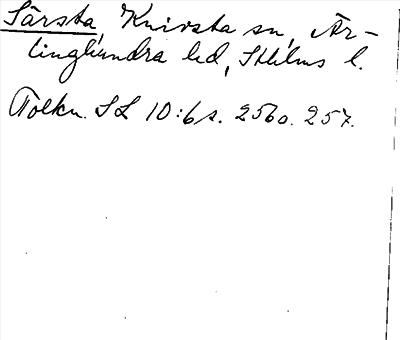 Särsta, Knivsta sn, Är-
linghundra hd, Sthlms l.
Tolkn. SL 10:6 s. 256 o. 257.